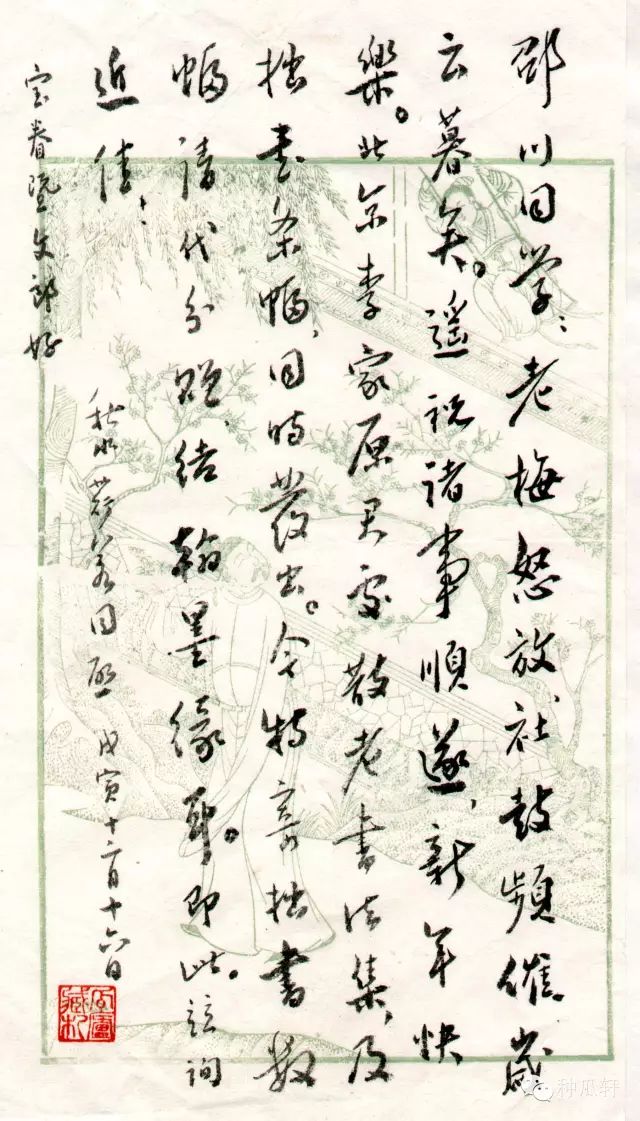 邵川同学：老梅怒放，社鼓频催，岁
云暮矣。遥祝诸事顺遂，新年快
乐。北京李家原君寄散老书法集，及
拙书条幅，同时发出。今特寄拙书数
幅请代分赠，结翰墨缘耶。即此。并询
近佳！
宝眷暨文郎好
秋水 若同启 戊寅十二月十六日
种瓜轩